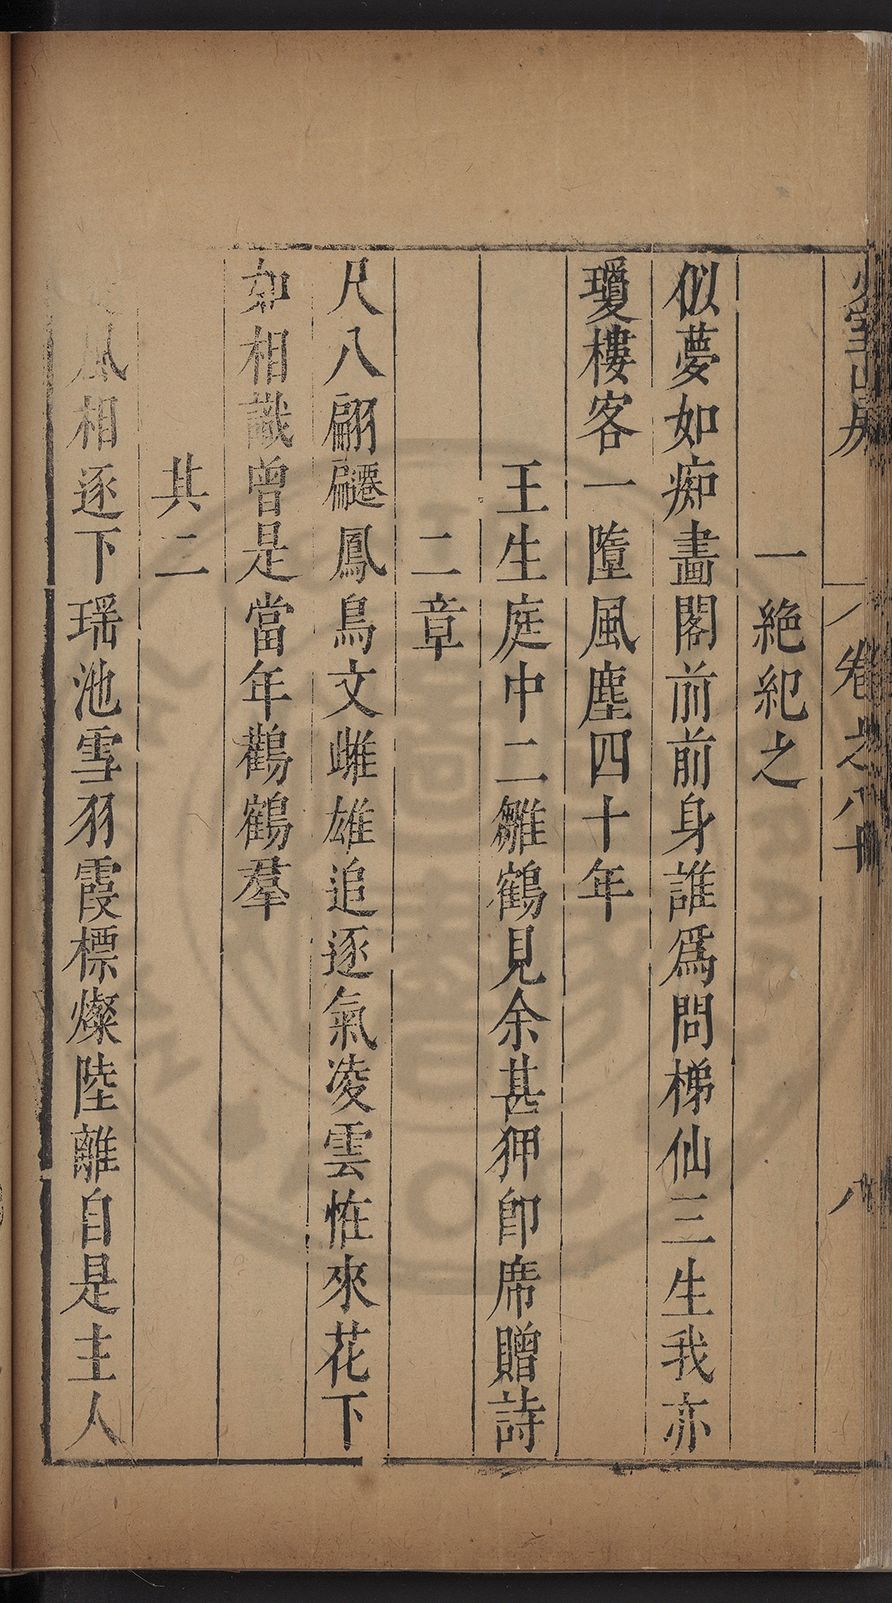 少室山房
卷之八十
八
一絶紀之
似夢如痴畵閣前前身誰爲問梯仙三生我亦
瓊樓客一墮風塵四十年
王生庭中二雛鶴見余甚狎卽席贈詩
二章
尺八翩䙴鳳鳥文雌雄追逐氣凌雲怪來花下
如相識曾是當年鸛鶴羣
其二
風相逐下瑶池雪羽霞標燦陸離自是主人